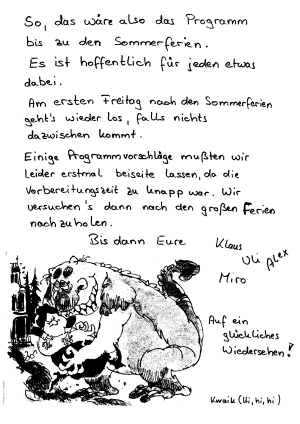 So, das wäre also das Programm
bis zu den Sommerferien.
Es ist hoffentlich für jeden etwas
dabei.
Am ersten Freitag nach den Sommerferien
geht's wieder los, falls nichts
dazwischen kommt.
Einige Programmvorschläge mußten wir
leider erstmal beiseite lassen, da die
Vorbereitungszeit zu knapp war. Wir
versuchen's dann nach den großen Ferien
nachzuholen.
Bis dann Eure
Klaus
Uli
Alex
Miro
Auf ein
glückliches
Wiedersehen!
Kwaik (hi, hi, hi)